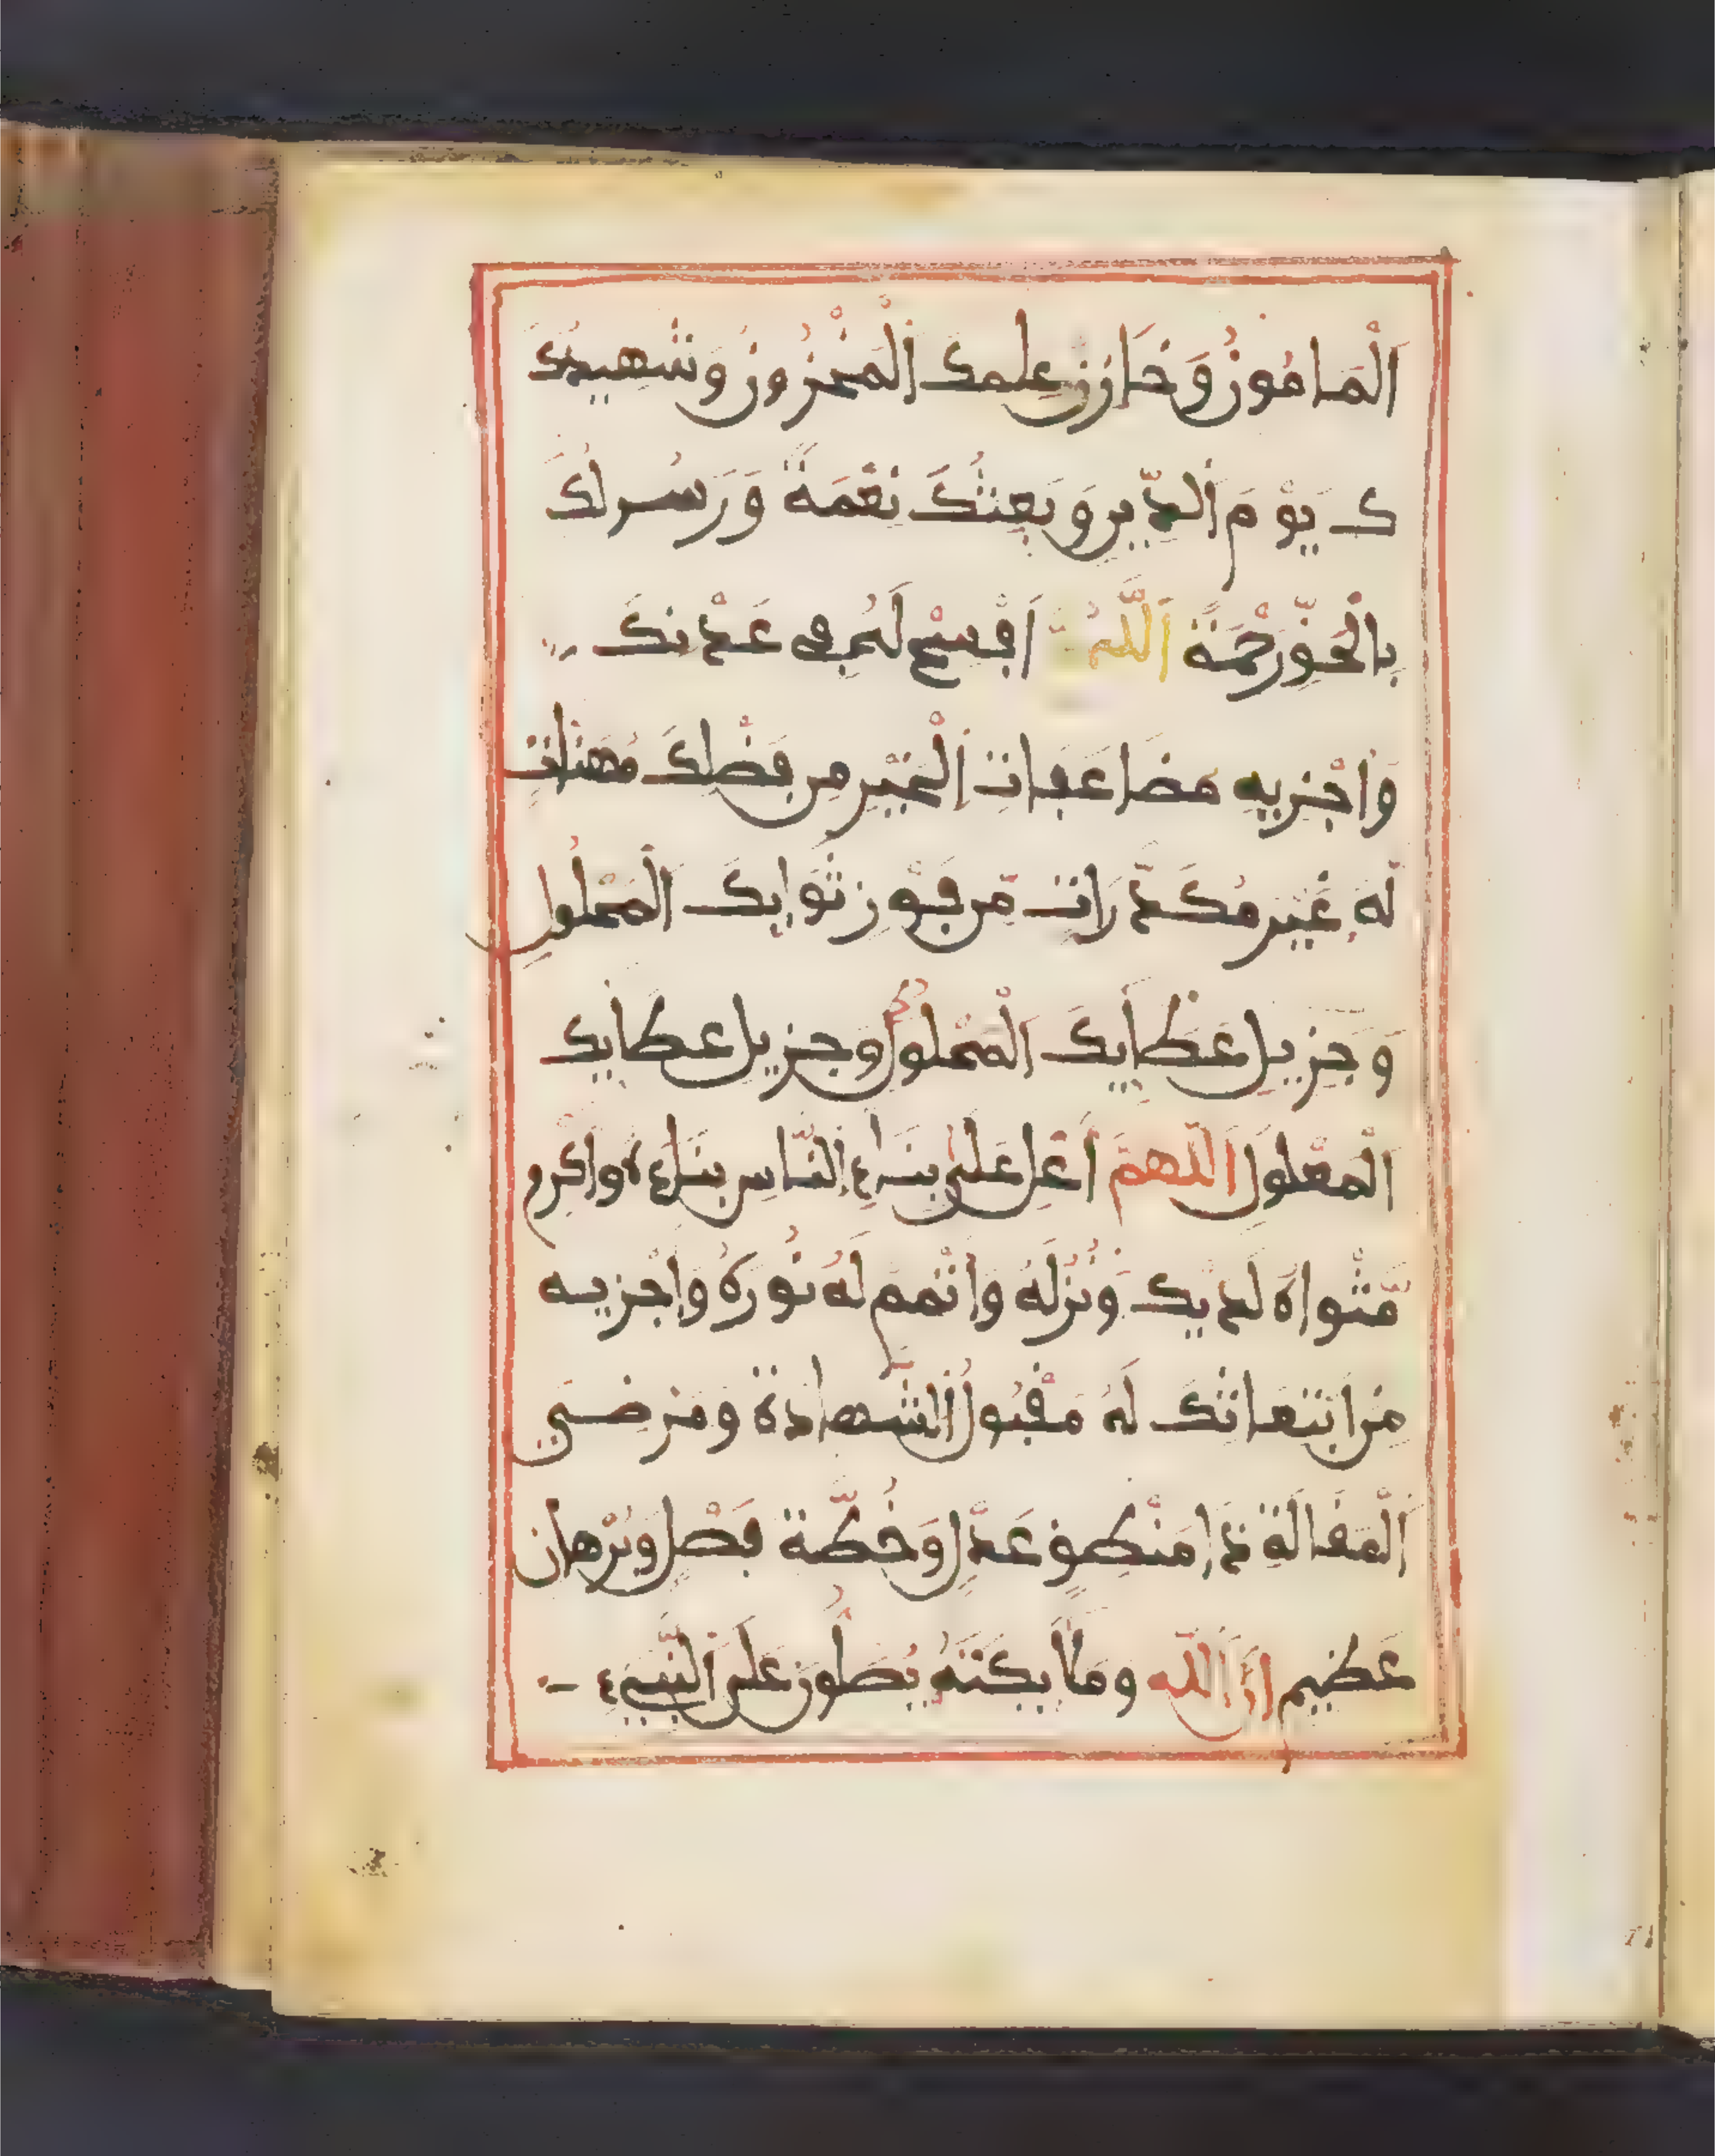 الْمَامُونُ وَخَازِنِ عِلمِكَ الْمَخْزُونِ وَشَهِيدُكَ
ك يَوْمَ الدِّينِ وَبَعِيثُكَ نِعْمَةً وَرَسُولُكَ
بِالْحَقِّ رَحْمَةً اَللَّهُمَّ اَفْسِحْ لَهُ فِي عَدْنِكَ
وَاجْزِيهِ مضَاعَفَاتِ الْخَيْرِ مِن فَضْلِكَ مُهَنَّات
لَهُ غَيْرِ مُكَدَّرَاتٍ مِّن فَوْزِ ثَوَابِكَ الْمَحْلُولِ
وَجَزِيلِ عَطَايِكَ الْمَحْلُولِ وَجزيل عطايك
الْمَعْلُولِ اللهمَّ أَعْلِ عَلَى بِنَاءِ النَّاسِ بِنَاءَهُ وَأَكْرِم
مَّثْوَاهُ لَدَيْكَ وَنُزُلَهُ وَاتْمِمْ لَهُ نُورَهُ وَاجْزِيهِ
مِن ابْتِعَاثِكَ لَهُ مَقْبُولَ الشَّهَادَةِ وَمَرْضِيَّ
الْمَقَالَةِ ذَا مَنْطِقٍ عَدْلٍ وَخُطَّةٍ فَصْلٍ وَبُرْهَان
عَظِيمٍ إِنَّ اللَّه وَمَلَايِكَتَهُ يُصَلُّونَ عَلَى النَّبِيءِ